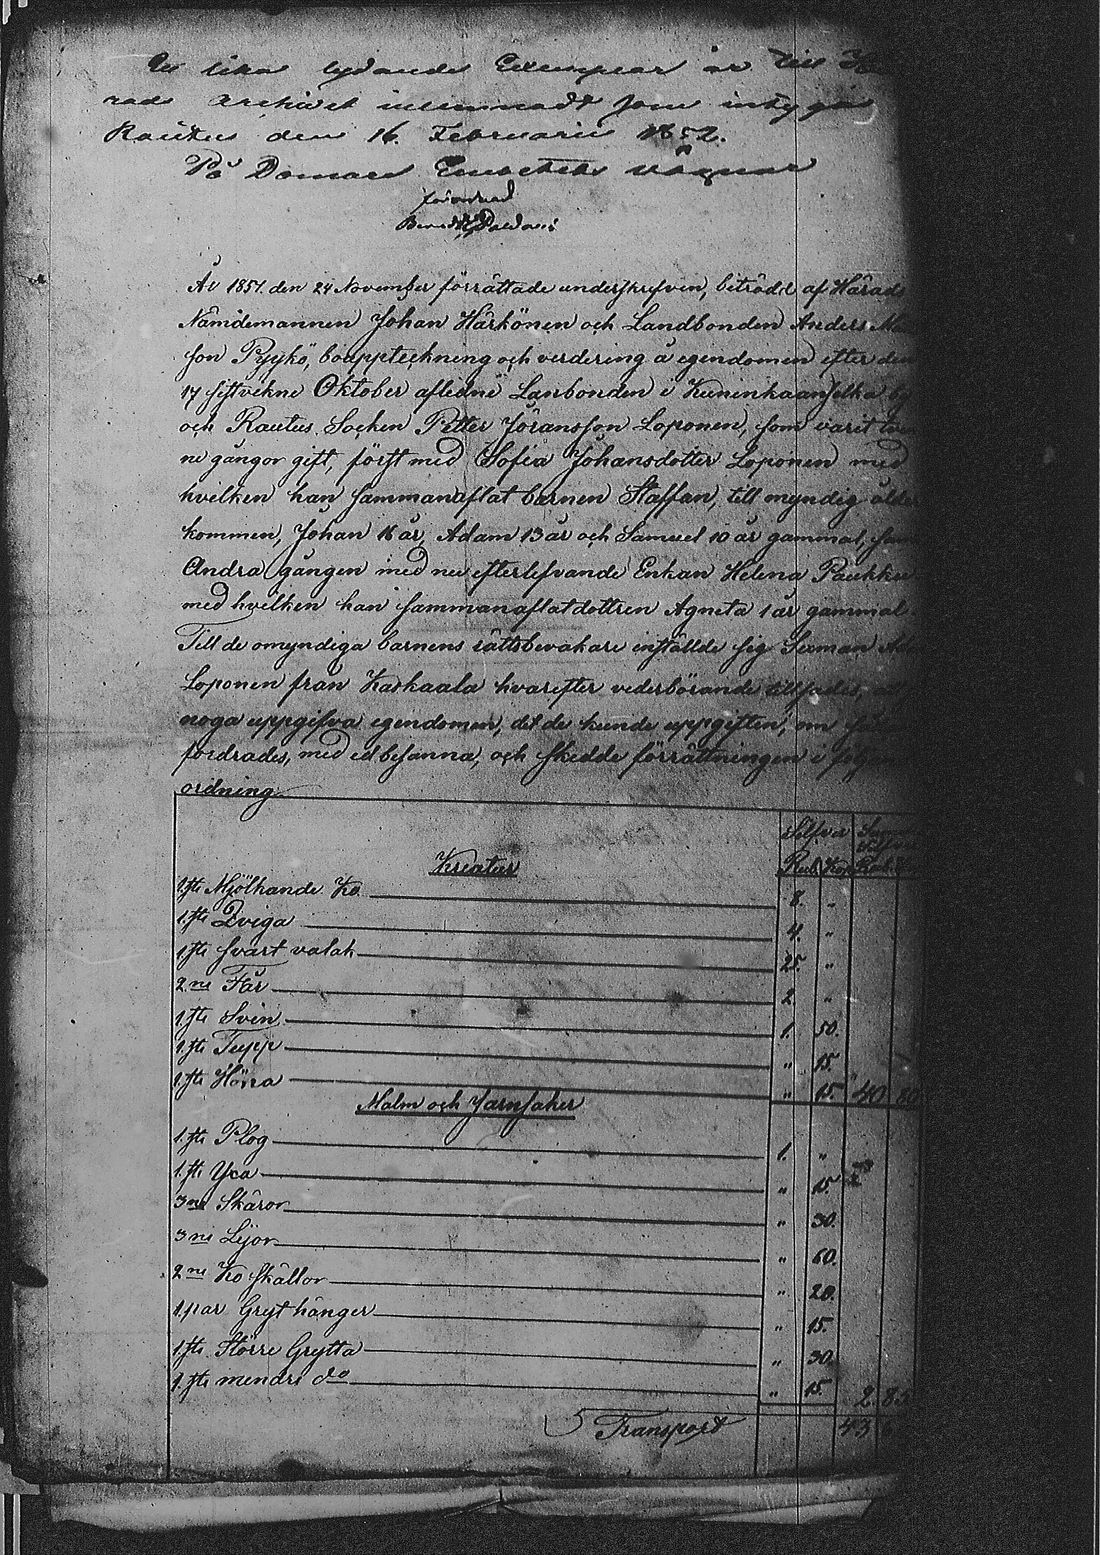 Ett lika lydande Exemplar är till Hä
rads Archivet inlemnadt som intygar
Rautus den 16. Februarii 1852.
På Domare Embetets vägnar
förordnad
År 1851. den 24 November förrättade underskrefven, biträdd af Härads
Nämdemannen Johan Härkönen och Landbonden Anders Mat
son Pyykö, bouppteckning och verdering å egendomen efter den
17 sistvikne Oktober aflidne Lanbonden i Kuninkaanselka by
och Rautus Socken Petter Jöransson Loponen, som varit tven
ne gångor gift, först med Sofia Johansdotter Loponen med
hvilken han sammanaflat barnen Staffan, till myndig ålder
kommen, Johan 16 år, Adam 13 år och Samuel 10 år gammal, samt
Andra gången med nu efterlefvande Enkan Helena Paukku
med hvilken han sammanaflat dottren Agneta 1 år gammal.
Till de omyndiga barnens rättsbevakare inställde sig Sexman
Loponen från Karkaala hvarefter vederbörande tillsades, at
noga uppgifva egendomen, det de kunde uppgiften, om så
fordrades, med ed besanna, och skedde förrättningen i följan
ordning
Silfver Summa Silfver
Kreatur Rub. Kop. Rub.
1. st. Mjölkande Ko 8. "
1. st. Qviga 4. "
1. st. svart valak 25. "
2. ne Får 2. "
1. st. Svin 1. 50.
1. st. Tupp " 15.
1. st. Höna " 15. 40 80
Malm och Jarnsaker
1. st. Plog 1. "
1. st. Yxa " 15.
3 ne Skäror " 30.
3 ne Lijor " 60.
2 ne Ko skällor " 20.
1. par Gryt hänger " 15.
1. st. Större Grytta " 30.
1. st. mendre do " 15. 2 85
Transport 43 6